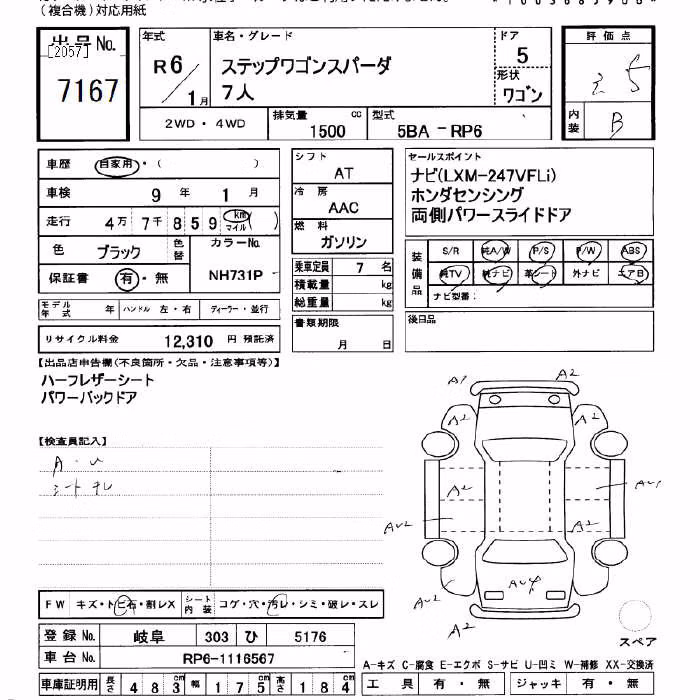 (複合機)対応用紙
出品No.
[2057]
7167
年式
R6/1月
車名・グレード
ステップワゴンスパーダ
7人
ドア
5
形状
ワゴン
評価点
内装
B
2WD・4WD
排気量
1500 cc
型式
5BA-RP6
車歴
自家用・( )
車検
9年 1月
走行
4万7千859 km マイル ( )
色
ブラック
色替
カラーNo.
NH731P
保証書
有・無
モデル年式
年
ハンドル 左・右
ディーラー・並行
リサイクル料金
12,310 円 預託済
シフト
AT
冷房
AAC
燃料
ガソリン
乗車定員 7 名
積載量 kg
総重量 kg
書類期限
月 日
セールスポイント
ナビ(LXM-247VFLi)
ホンダセンシング
両側パワースライドドア
装備品
S/R 純A/W P/S P/W ABS
純TV 純ナビ 革シート 外ナビ エアB
ナビ型番:
後日品
【出品店申告欄(不良箇所・欠品・注意事項等)】
ハーフレザーシート
パワーバックドア
【検査員記入】
A・U
シートチレ
A1 A2
A2 A2
A2 AU1
AU2 A2 A2
AU2 AU4
A2
スペア
FW キズ・トビ石・割レX
シート内装 コゲ・穴・汚レ・シミ・破レ・スレ
登録No. 岐阜 303 ひ 5176
車台No. RP6-1116567
車庫証明用 長さ 483cm 幅 175cm 高さ 184cm
A-キズ C-腐食 E-エクボ S-サビ U-凹ミ W-補修 XX-交換済
工具 有・無 ジャッキ 有・無